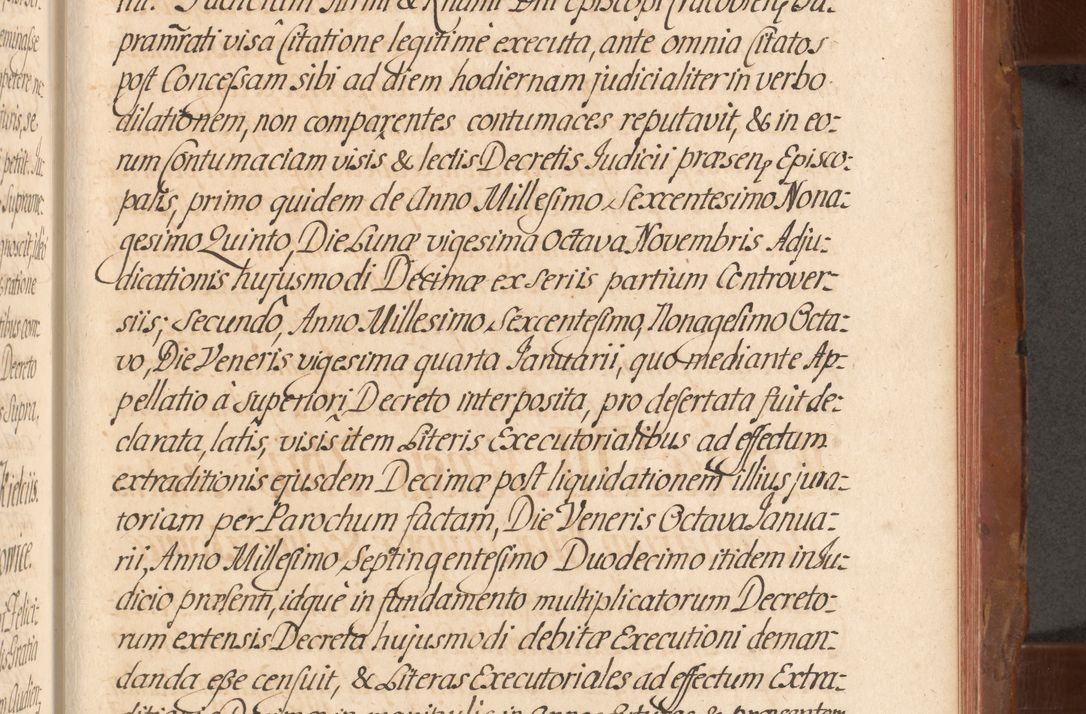 pram̃rati visâ Citatione legitimè executa, ante omnia Citatos
post Concessam sibi ad diem hodiernam judicialiter in verbo
dilationem, non comparentes contumaces reputavit, & in eo-
rum Contumaciam visis & lectis Decretis Judicii præsen. Episco-
palis, primo quidem de Anno Millesimo Sexcentesimo Nona-
gesimo Quinto, Die Lunæ vigesima Octava Novembris Adju-
dicationis hujusmodi Decimæ ex seriis partium Controver-
siis; Secundò, Anno Millesimo Sexcentesimo, Nonagesimo Octa-
vo, Die Veneris vigesima quarta Januarii, quo mediante Ap-
pellatio à superiori Decreto interposita, pro desertata fuit de-
clarata, latis, visis item Literis Executorialibus ad effectum
extraditionis ejusdem Decimæ post liquidationem illius jura-
toriam per Parochum factam, Die Veneris Octava Janua-
rii, Anno Millesimo Septingentesimo Duodecimo itidem in Ju-
dicio præsenti, idquè in fundamento multiplicatorum Decreto-
rum extensis Decreta hujusmodi debitæ Executioni deman-
danda esse censuit, & Literas Executoriales ad effectum Extra-